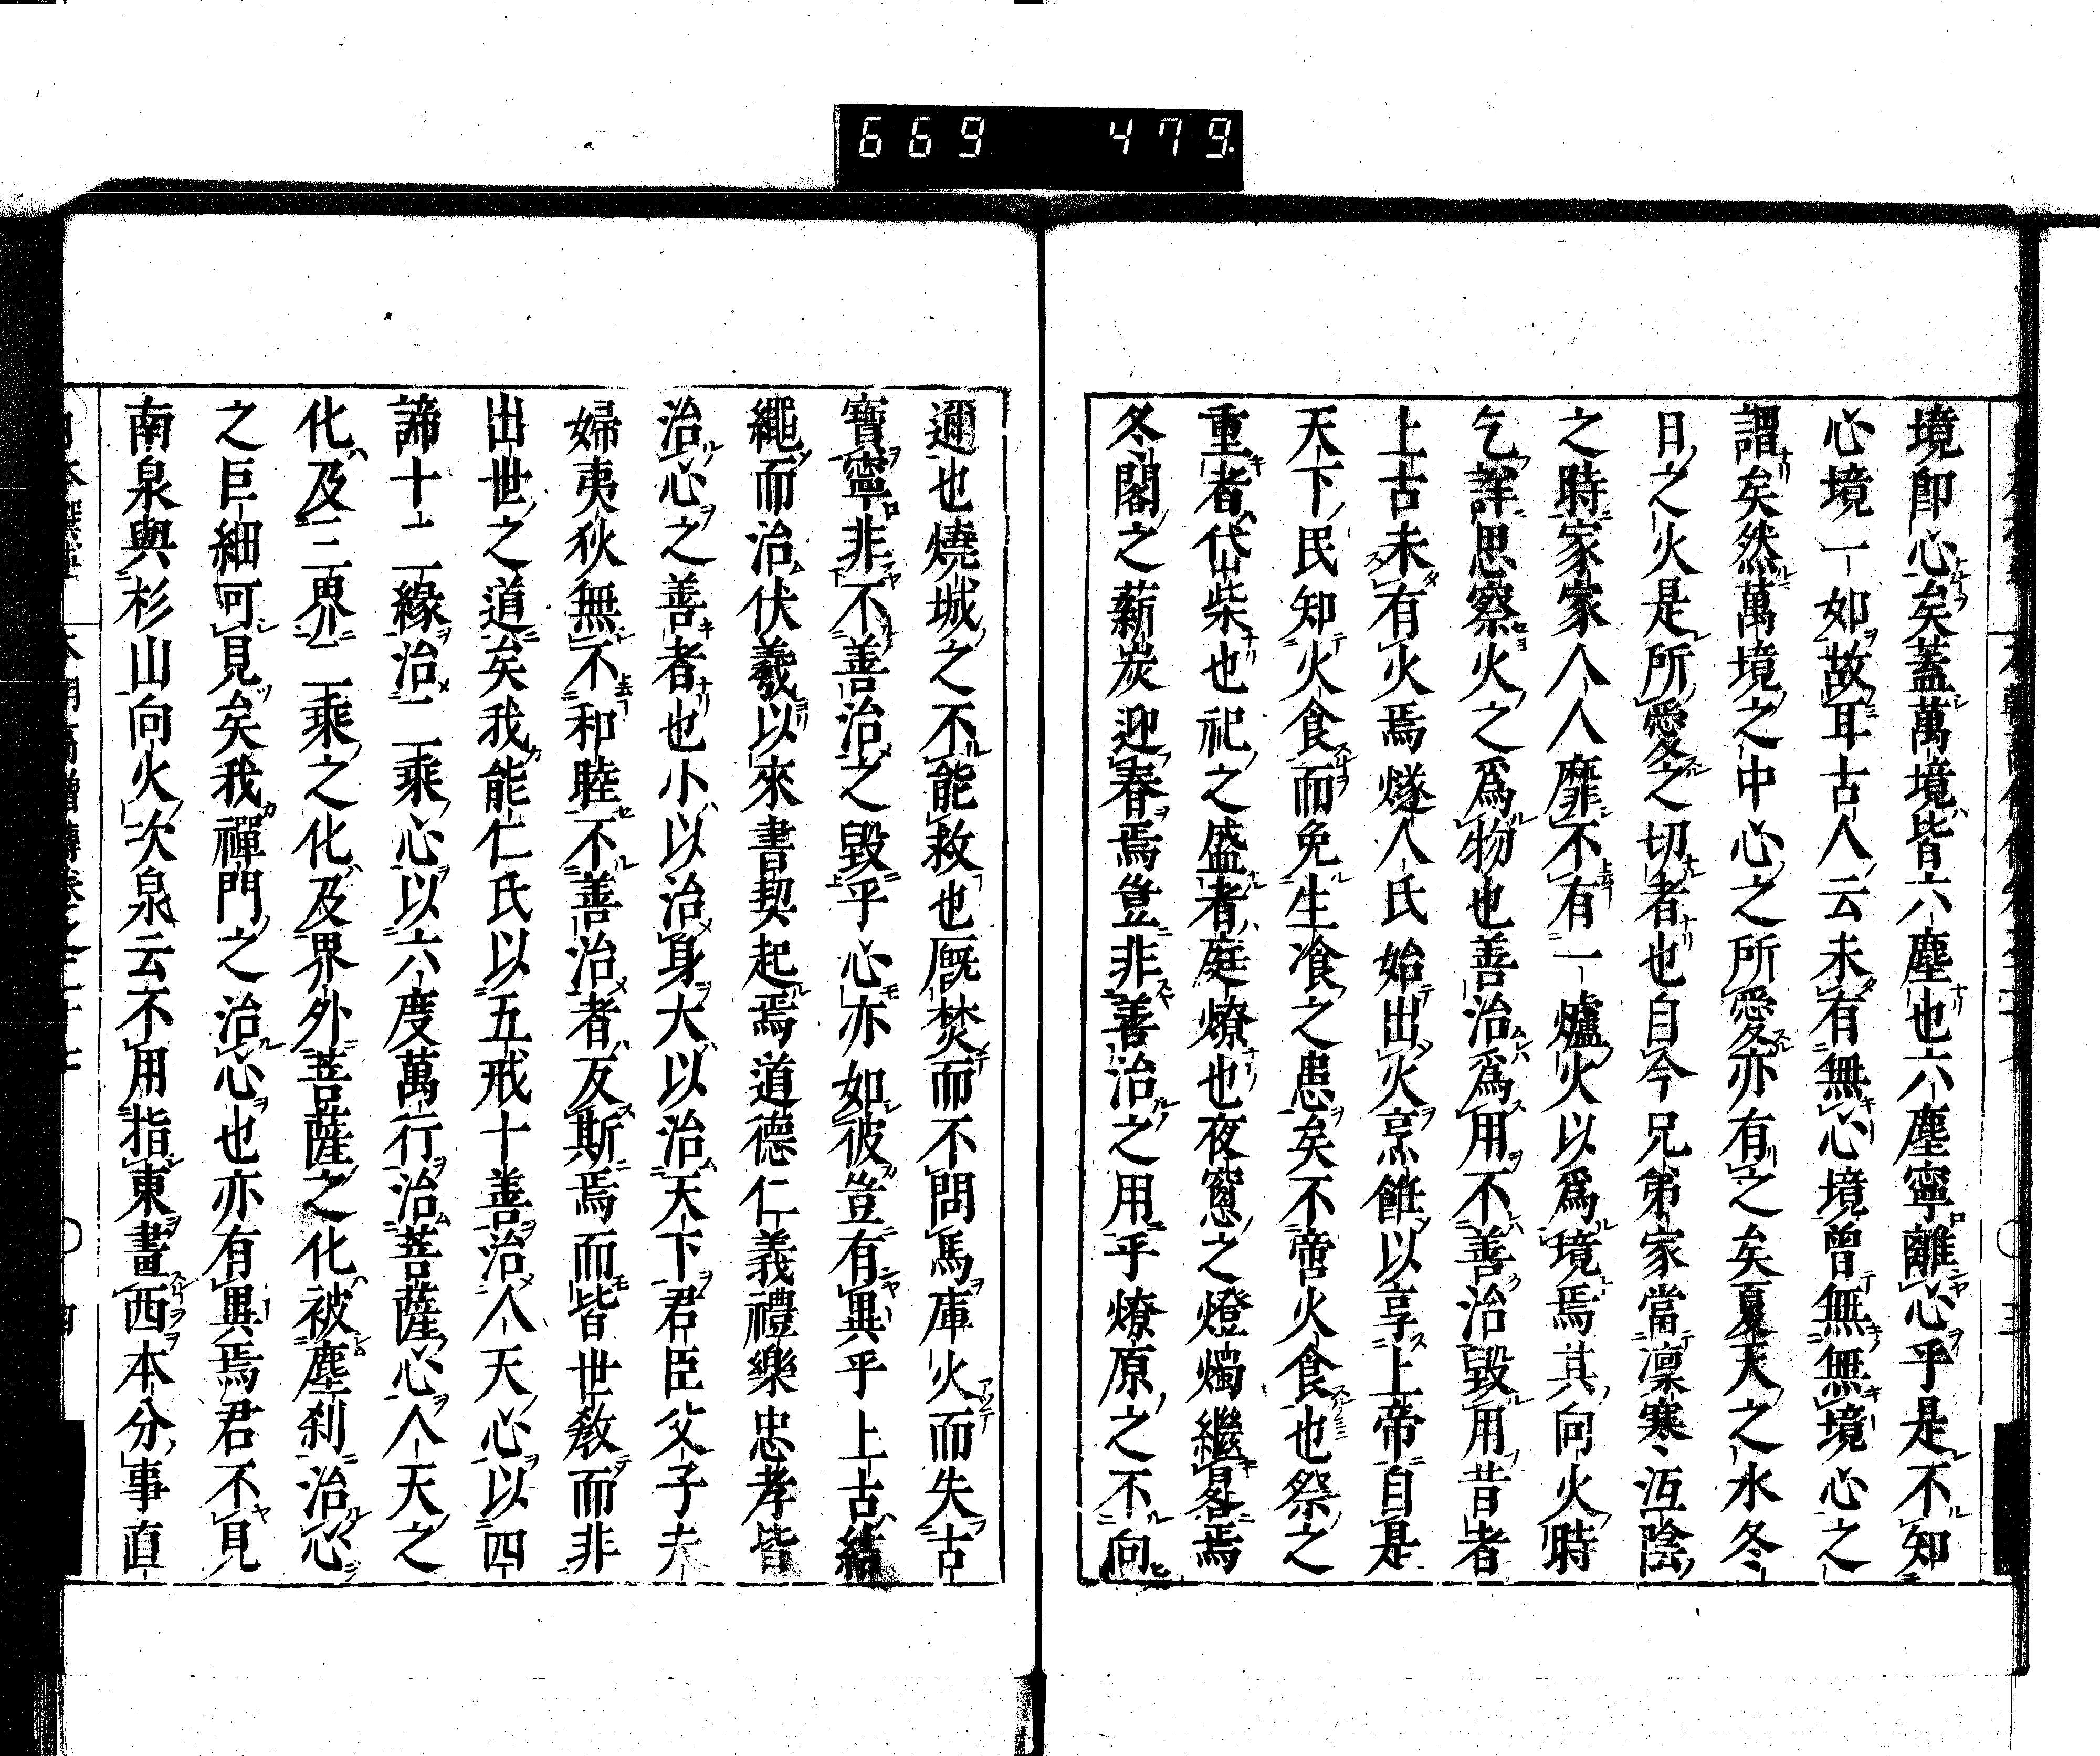 669 479
境即心矣蓋萬境皆六塵也六塵寧離心乎是不知
心境一如故耳古人云未有無心境曾無無境心之
謂矣然萬境之中心之所愛亦有之矣夏天之水冬
日之火是所愛之切者也自今兄弟家當凛寒沍陰
之時家家人人靡不有一爐火以爲境焉其向火時
乞詳思察火之爲物也善治爲用不善治毀用昔者
上古未有火焉燧人氏始出火烹飪以享上帝自是
天下民知火食而免生飡之患矣不啻火食也祭之
重者岱柴也祀之盛者庭燎也夜窻之燈燭繼晷焉
冬閣之薪炭迎春焉豈非善治之用乎燎原之不向
邇也燒城之不能救也厩焚而不問馬庫火而失古
寶寧非不善治之毀乎心亦如彼豈有異乎上古結
繩而治伏羲以來書契起焉道德仁義禮樂忠孝皆
治心之善者也小以治身大以治天下君臣父子夫
婦夷狄無不和睦不善治者反斯焉而皆世敎而非
出世之道矣我能仁氏以五戒十善治人天心以四
諦十二緣治二乘心以六度萬行治菩薩心人天之
化及三界二乘之化及界外菩薩之化被塵刹治心
之巨細可見矣我禪門之治心也亦有異焉君不見
南泉與杉山向火次泉云不用指東畫西本分事直